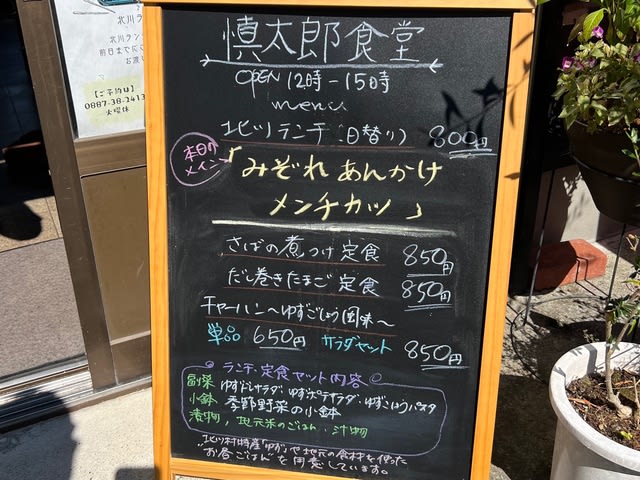 北川ラン
前日までに
お渡し
【ご予約は】
0887-38-2413
火曜休
慎太郎食堂
OPEN 12時-15時
menu
北川ランチ(日替り) 800円
本日のメイン
「みぞれあんかけ
メンチカツ」
さばの煮つけ定食 850円
だし巻きたまご定食 850円
チャーハン〜ゆずごしょう風味〜
単品 650円 サラダセット 850円
ランチ・定食セット内容
副菜 ゆずドレサラダ・ゆずポテサラダ・ゆずこしょうパスタ
小鉢 季節野菜の小鉢
漬物, 地元米のごはん・汁物
北川村特産"ゆず"や地元の食材を使った
"お昼ごはん"を用意しています。